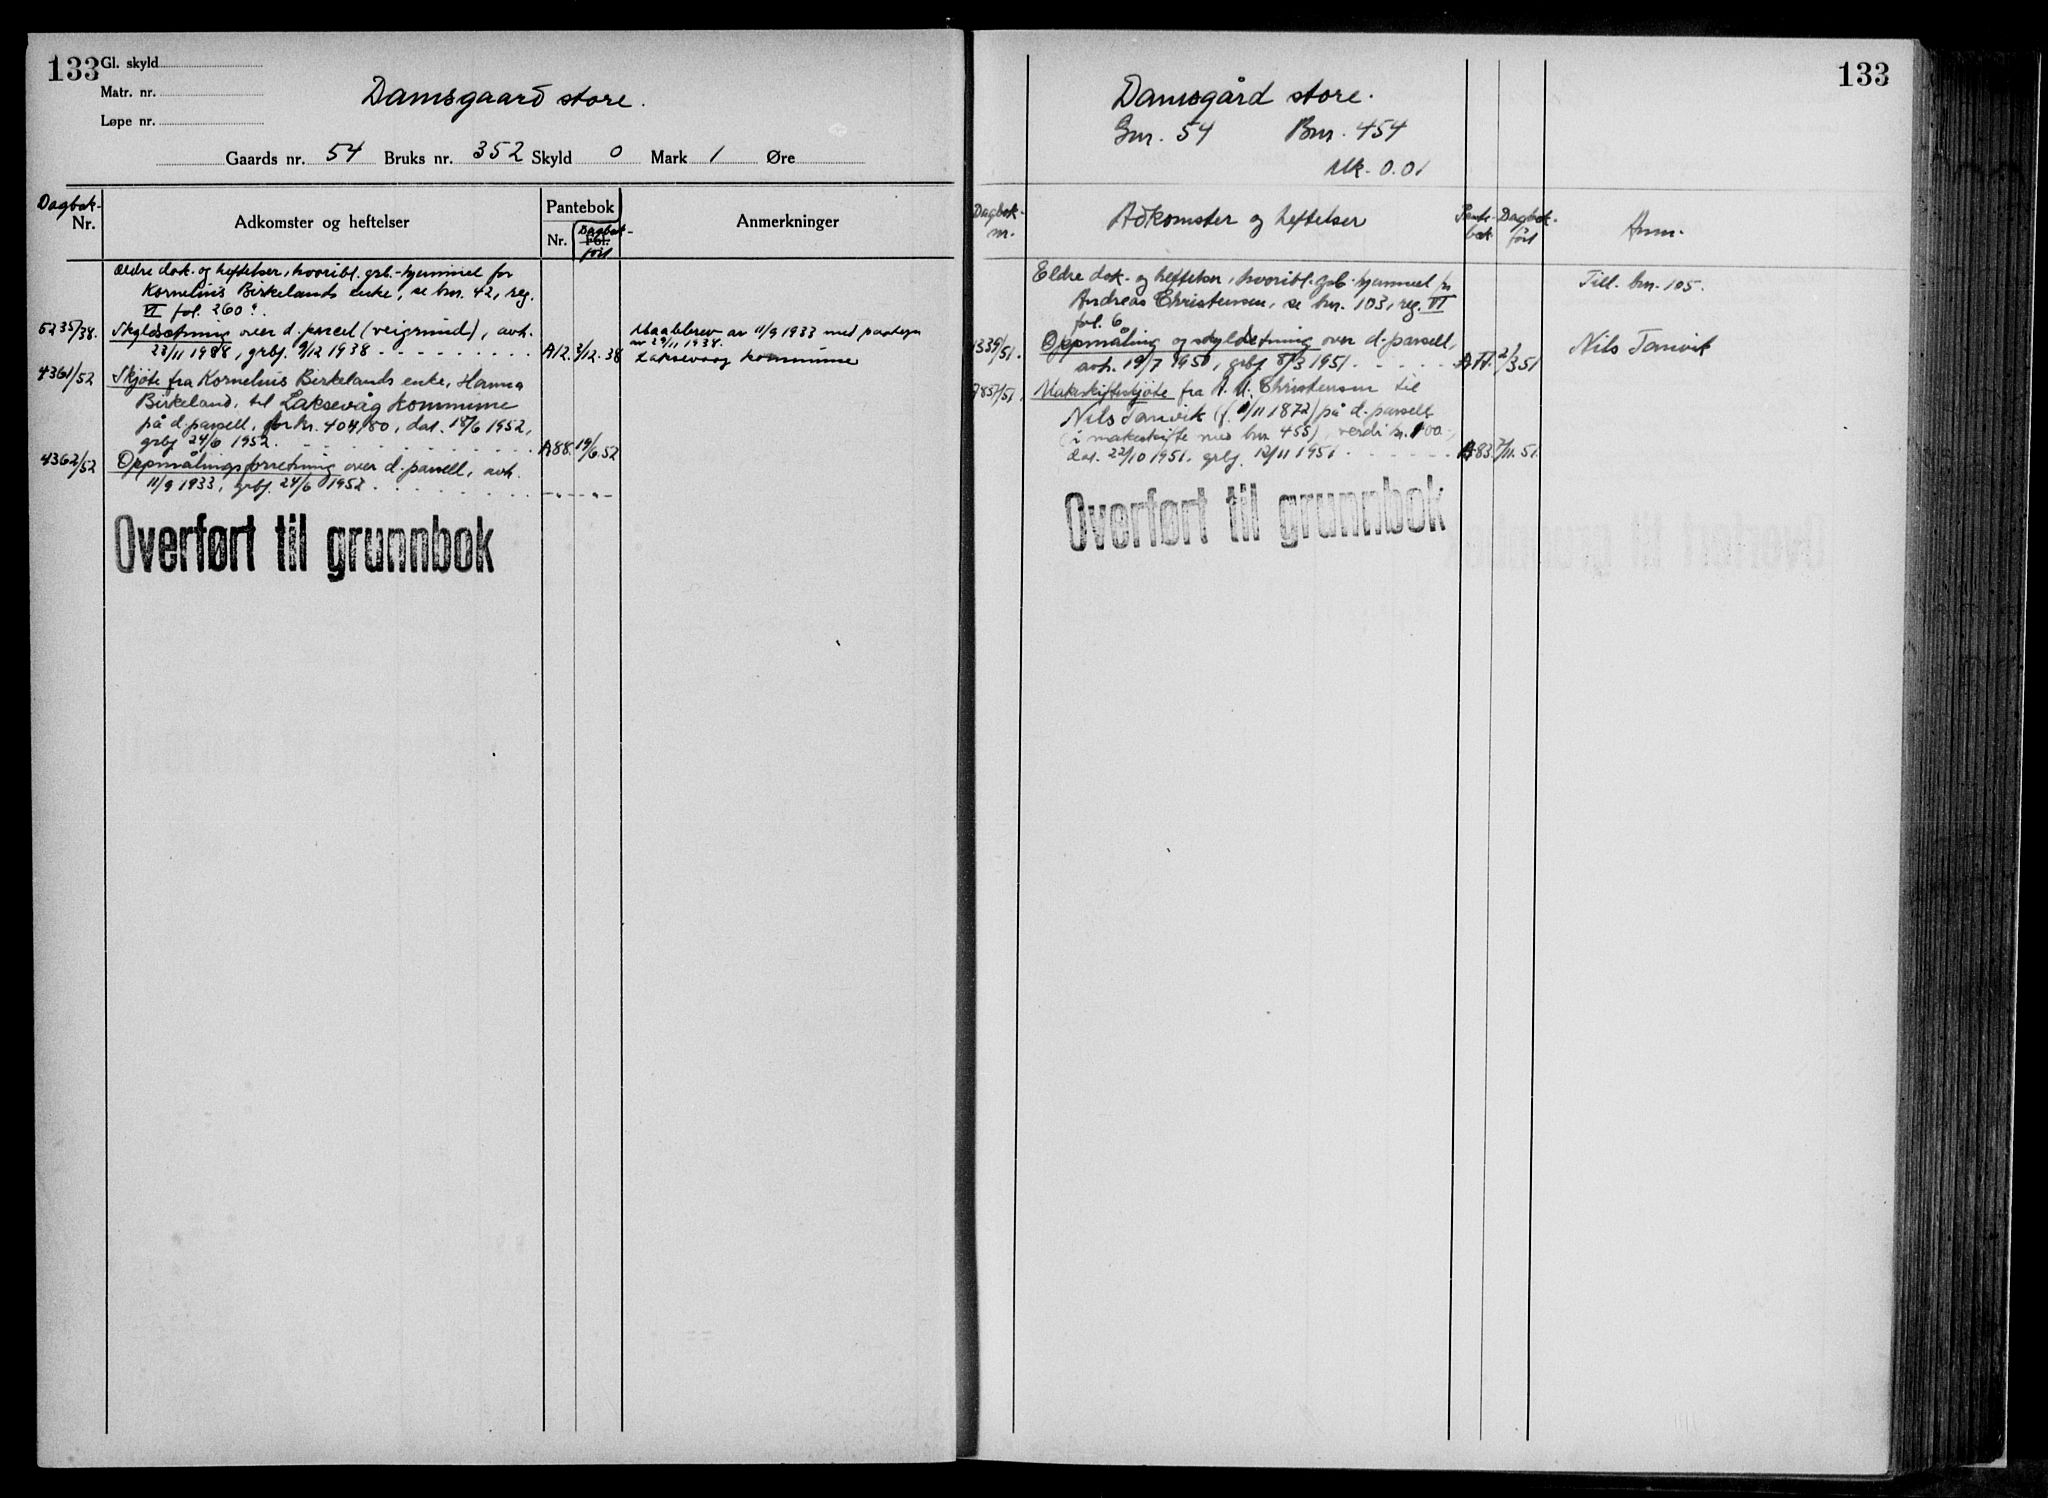 133
Gl. skyld
Matr. nr.
Løpe nr.
Damsgaard store.
Gaards nr. 54 Bruks nr. 352 Skyld 0 Mark 1 Øre
Dagbok-
Nr.
Adkomster og heftelser
Pantebok
Nr.
Fol.
Dagbok-
ført
Anmerkninger
Ældre dok. og heftelser, hvoribl. grb.-hjemmel for
Kornelius Birkelands enke, se bnr. 42, reg.
VI fol. 260.
5235/38. Skyldsetning over d. parcel (veigrund), avh.
23/11 1938, grbf. 9/12 1938 A12. 2/12.38
Maalebrev av 11/9 1933 med paategn
av 29/11 1938.
Laksevaag kommune
4361/52 Skjøte fra Kornelius Birkelands enke, Hanna
Birkeland, til Laksevåg kommune
på d. parsell, for kr. 404,80, dat. 18/6 1952,
grbf 24/6 1952. A88. 19/6.52
4362/52 Oppmålingsforretning over d. parsell, avh.
11/9 1933, grbf. 24/6 1952. -"- -"-
Overført til grunnbok
133
Damsgård store.
Gnr. 54 Bnr. 454
Mk. 0.01
Dagbok-
nr.
Adkomster og heftelser
Pante-
bok
Dagbok-
ført
Anm.
Eldre dok. og heftelser, hvoribl. grb.-hjemmel for
Andreas Christensen, se bnr. 103, reg. VI
fol. 6
Till. bnr. 105.
1339/51. Oppmåling og skyldsetning over d. parsell,
avh. 19/7 1950, grbf 8/3 1951. 2/3 51
Nils Tanvik
Makeskifteskjøte fra A. M. Christensen til
Nils Tanvik (f. /11 1872) på d. parsell
(i makeskifte med bnr. 455), verdi kr. 100.-,
dat. 22/10 1951. grbf. 12/11 1951 A83. 7/11.51.
Overført til grunnbok